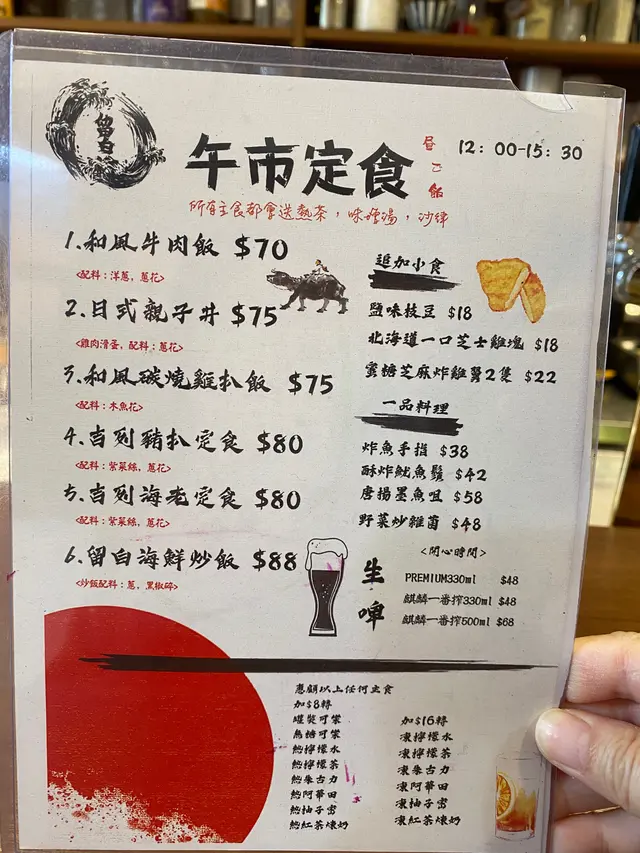 留白
午市定食
昼ご飯
12：00-15：30
所有主食都會送熱茶，味噌湯，沙律
1.和風牛肉飯 $70
<配料：洋蔥，蔥花>
2.日式親子丼 $75
<雞肉滑蛋，配料：蔥花>
3.和風碳燒雞扒飯 $75
<配料：木魚花>
4.吉列豬扒定食 $80
<配料：紫菜絲，蔥花>
5.吉列海老定食 $80
<配料：紫菜絲，蔥花>
6.留白海鮮炒飯 $88
<炒飯配料：蔥，黑椒碎>
追加小食
鹽味枝豆 $18
北海道一口芝士雞塊 $18
蜜糖芝麻炸雞翼2隻 $22
一品料理
炸魚手指 $38
酥炸魷魚鬚 $42
唐揚墨魚咀 $58
野菜炒雜菌 $48
生啤
<開心時間>
PREMIUM330ml $48
麒麟一番搾330ml $48
麒麟一番搾500ml $68
惠顧以上任何主食
加$8轉
罐裝可樂
無糖可樂
熱檸檬水
熱檸檬茶
熱朱古力
熱阿華田
熱柚子蜜
熱紅茶煉奶
加$16轉
凍檸檬水
凍檸檬茶
凍朱古力
凍阿華田
凍柚子蜜
凍紅茶煉奶